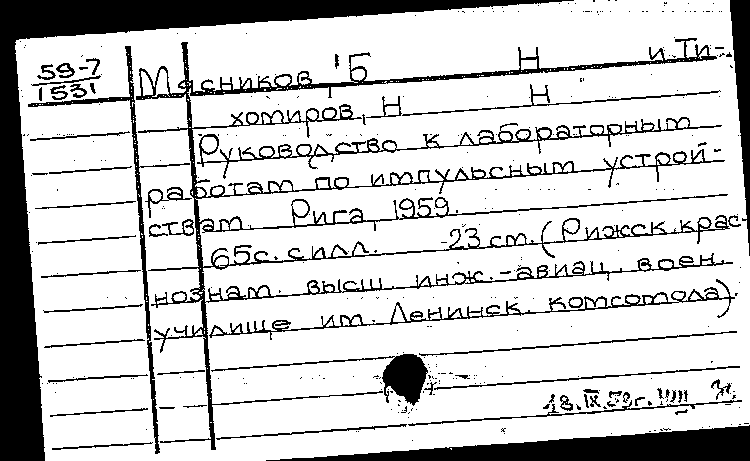 59-7
1531
Мясников, Б Н и Ти-
хомиров, Н Н
Руководство к лабораторным
работам по импульсным устрой-
ствам. Рига, 1959.
65с. с илл. 23 ст. (Рижск. крас-
нознам. высш. инж.-авиац. воен.
училище им. Ленинск. комсомола).
18.IX.59г.